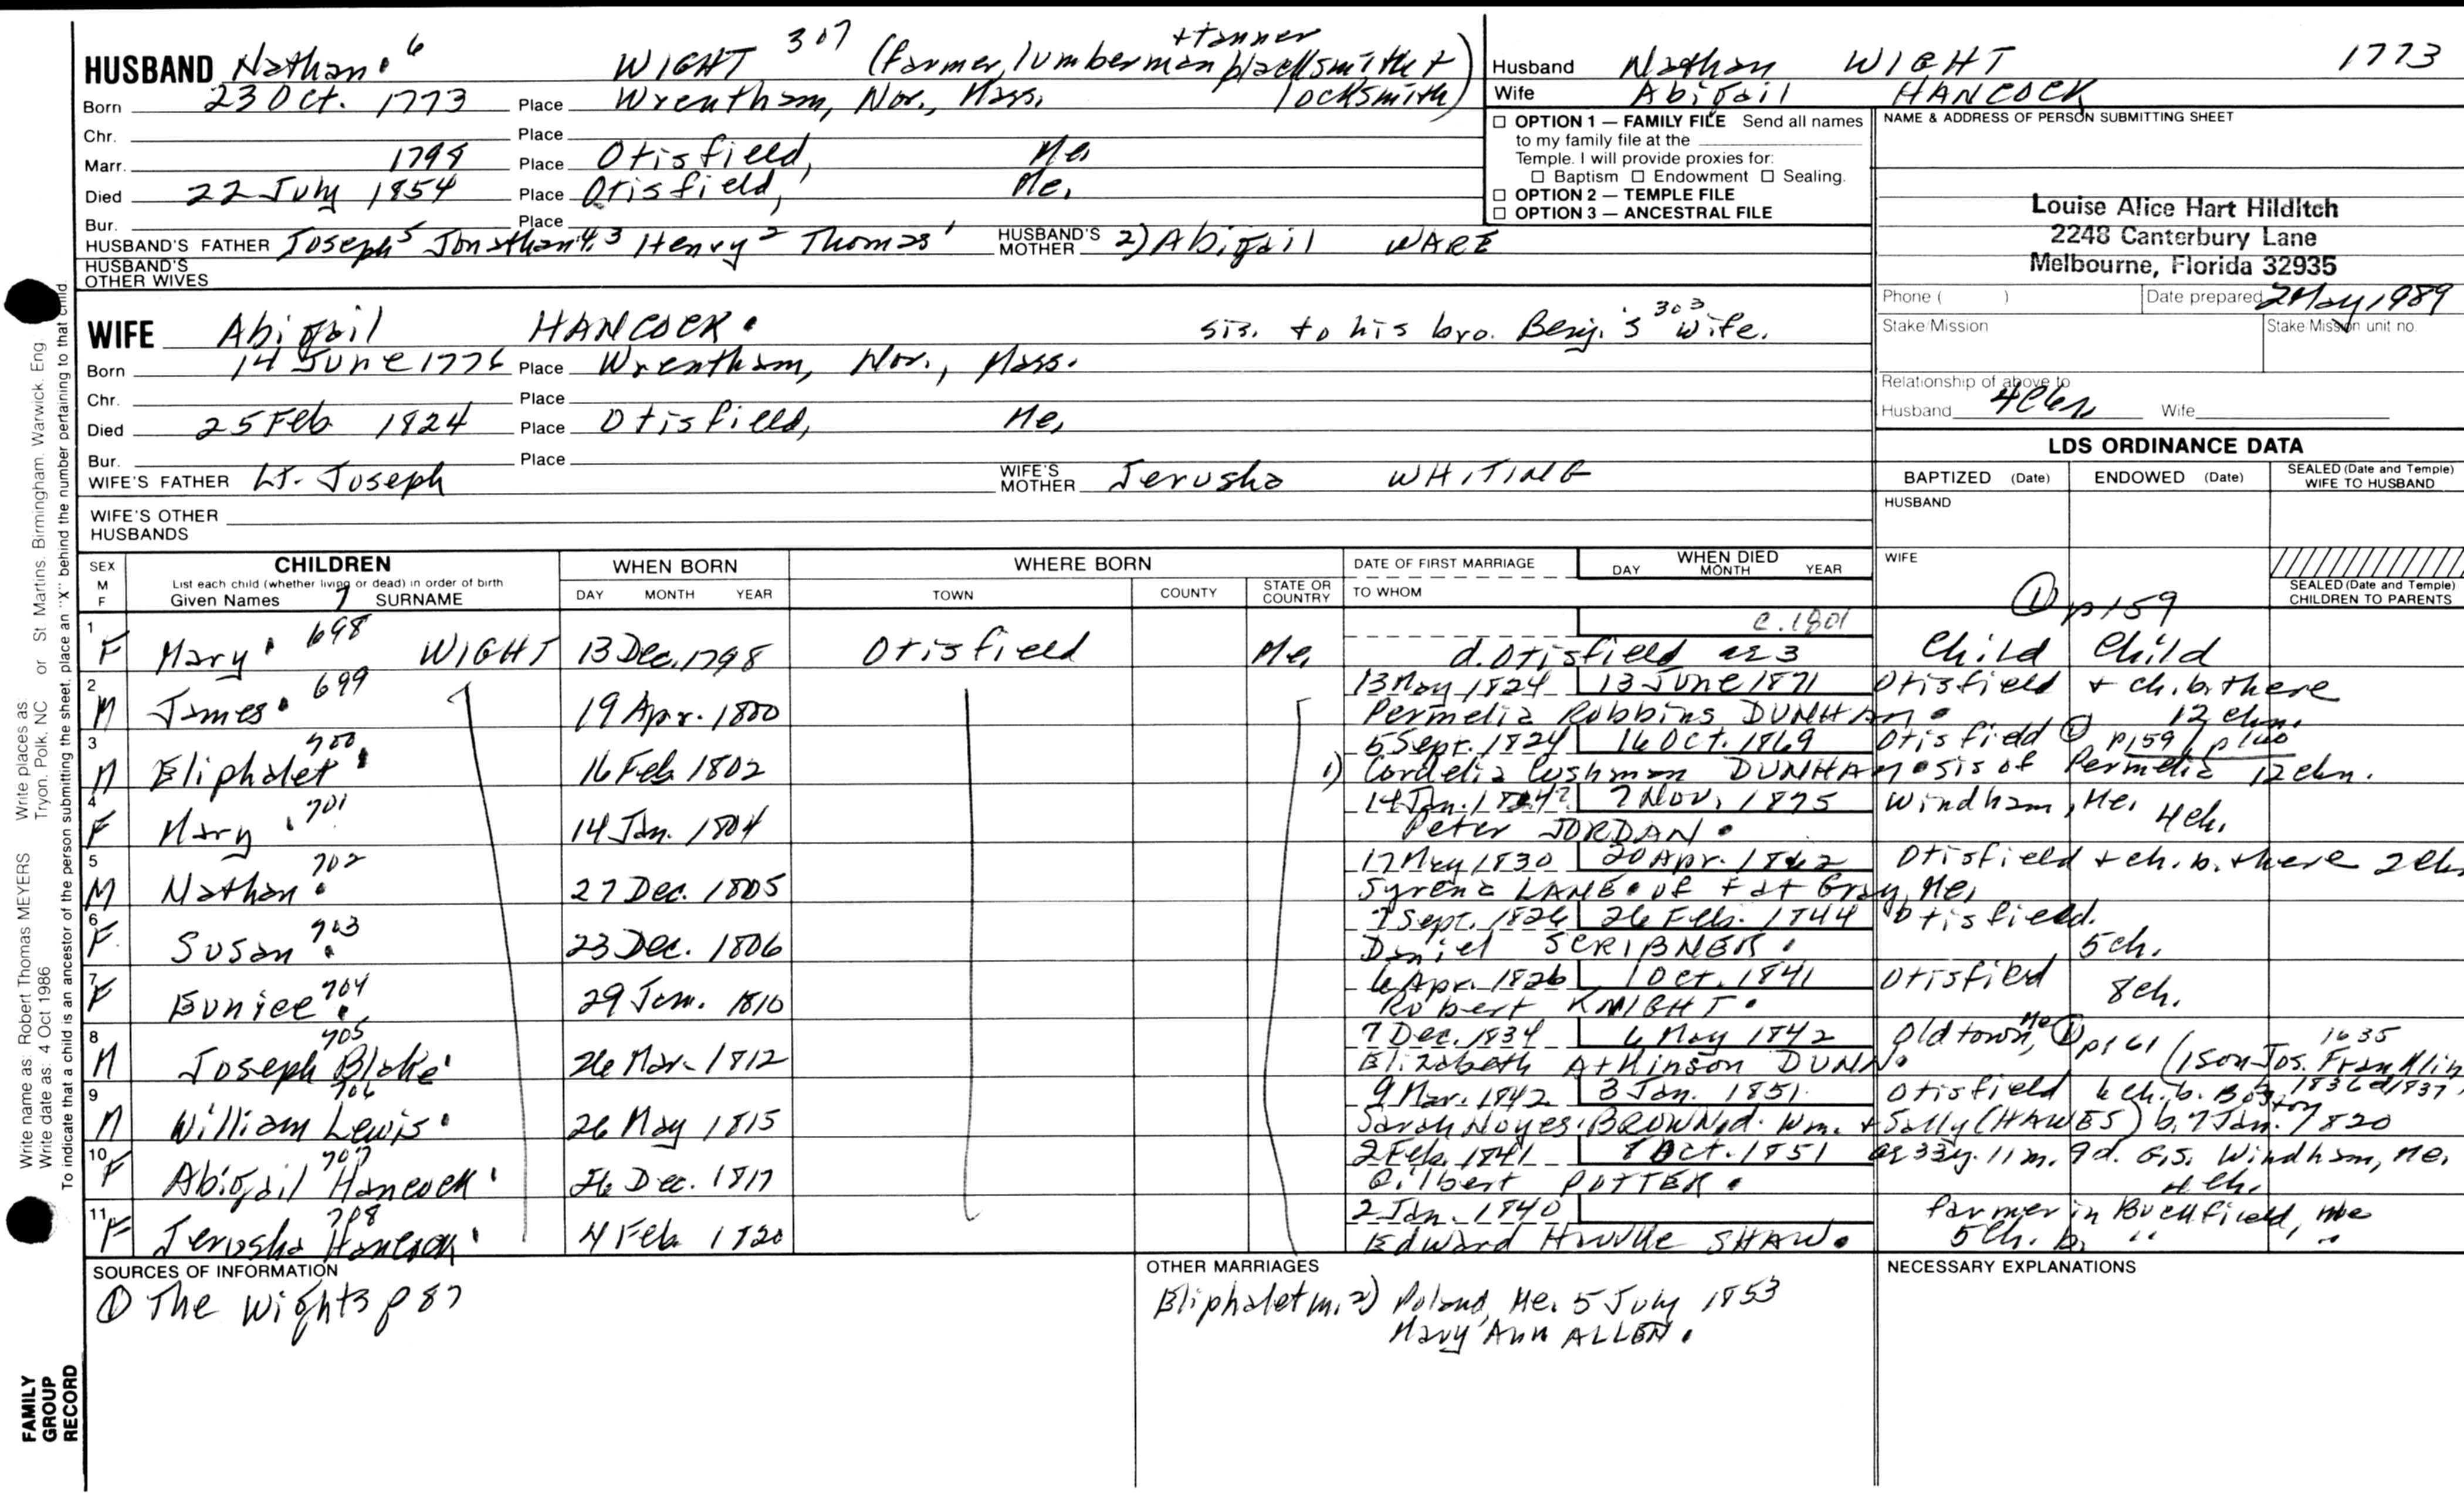 HUSBAND Nathan 6 WIGHT 307 (farmer, lumberman blacksmith + + tanner locksmith)
Born 23 Oct. 1773 Place Wrentham, Nor., Mass.
Chr. Place
Marr. 1798 Place Otisfield, Me.
Died 22 July 1854 Place Otisfield, Me.
Bur. Place
HUSBAND'S FATHER Joseph 5 Jonathan 4,3 Henry 2 Thomas 1 HUSBAND'S MOTHER 2) Abigail WARE
HUSBAND'S OTHER WIVES
Husband Nathan WIGHT 1773
Wife Abigail HANCOCK
☐ OPTION 1 — FAMILY FILE Send all names
to my family file at the
Temple. I will provide proxies for:
☐ Baptism ☐ Endowment ☐ Sealing.
☐ OPTION 2 — TEMPLE FILE
☐ OPTION 3 — ANCESTRAL FILE
NAME & ADDRESS OF PERSON SUBMITTING SHEET
Louise Alice Hart Hilditch
2248 Canterbury Lane
Melbourne, Florida 32935
Phone ( ) Date prepared 2 May 1989
Stake/Mission Stake/Mission unit no.
Relationship of above to
Husband Wife
WIFE Abigail HANCOCK. sis. to his bro. Benj.'s 303 wife.
Born 14 June 1776 Place Wrentham, Nor., Mass.
Chr. Place
Died 25 Feb 1824 Place Otisfield, Me.
Bur. Place
WIFE'S FATHER Lt. Joseph WIFE'S MOTHER Jerusha WHITING
WIFE'S OTHER HUSBANDS
LDS ORDINANCE DATA
BAPTIZED (Date) ENDOWED (Date) SEALED (Date and Temple) WIFE TO HUSBAND
HUSBAND
WIFE
SEALED (Date and Temple) CHILDREN TO PARENTS
① p159
SEX M F CHILDREN WHEN BORN WHERE BORN DATE OF FIRST MARRIAGE WHEN DIED
List each child (whether living or dead) in order of birth
Given Names 7 SURNAME DAY MONTH YEAR TOWN COUNTY STATE OR COUNTRY TO WHOM DAY MONTH YEAR
1 F Mary 698 WIGHT 13 Dec. 1798 Otisfield Me. c. 1801
d. Otisfield ae 3 Child Child
2 M James 699 19 Apr. 1800 13 May 1824 13 June 1871 Otisfield + ch. b. there
Permelia Robbins DUNHAM. 12 chn.
3 M Eliphalet 700 16 Feb 1802 5 Sept. 1824 16 Oct. 1869 Otisfield ① p159, p160
1) Cordelia Cushman DUNHAM. sis of Permelia 12 chn.
4 F Mary 701 14 Jan. 1804 7 Nov. 1875 Windham, Me.
Peter JORDAN. 4 ch.
5 M Nathan 702 27 Dec. 1805 17 May 1830 20 Apr. 1862 Otisfield + ch. b. there 2 ch
Syrena LANE. of Gray, Me.
6 F Susan 703 23 Dec. 1806 7 Sept. 1826 26 Feb. 1844 Otisfield.
Daniel SCRIBNER. 5 ch.
7 F Eunice 704 29 Jan. 1810 6 Apr. 1826 1 Oct. 1841 Otisfield
Robert KNIGHT. 8 ch.
8 M Joseph Blake 705 26 Mar. 1812 7 Dec. 1834 6 May 1842 Old town, Me ① p161 (1 son Jos. Franklin 1635
Elizabeth Atkinson DUNN. b. 1836 d 1837
9 M William Lewis 706 26 May 1815 9 Mar. 1842 3 Jan. 1851 Otisfield 6 ch. b. Boston
Sarah Noyes BROWN d. Wm. + Sally (HAWES) b. 7 Jan. 1820
10 F Abigail Hancock 707 26 Dec. 1817 2 Feb. 1841 8 Oct. 1851 ae 33y. 11m. 9d. G.S. Windham, Me.
Gilbert POTTER. 4 ch.
11 F Jerusha Hancock 708 4 Feb. 1820 2 Jan. 1840 farmer in Buckfield, Me
Edward SHAW. 5 ch. b. " "
SOURCES OF INFORMATION
① The Wights p 87
OTHER MARRIAGES
Eliphalet m. 2) Poland, Me. 5 July 1853
Mary Ann ALLEN.
NECESSARY EXPLANATIONS
Write name as: Robert Thomas MEYERS Write places as: Tryon, Polk, NC or St Martins, Birmingham, Warwick, Eng
Write date as: 4 Oct 1986
To indicate that a child is an ancestor of the person submitting the sheet, place an "X" behind the number pertaining to that child
FAMILY
GROUP
RECORD